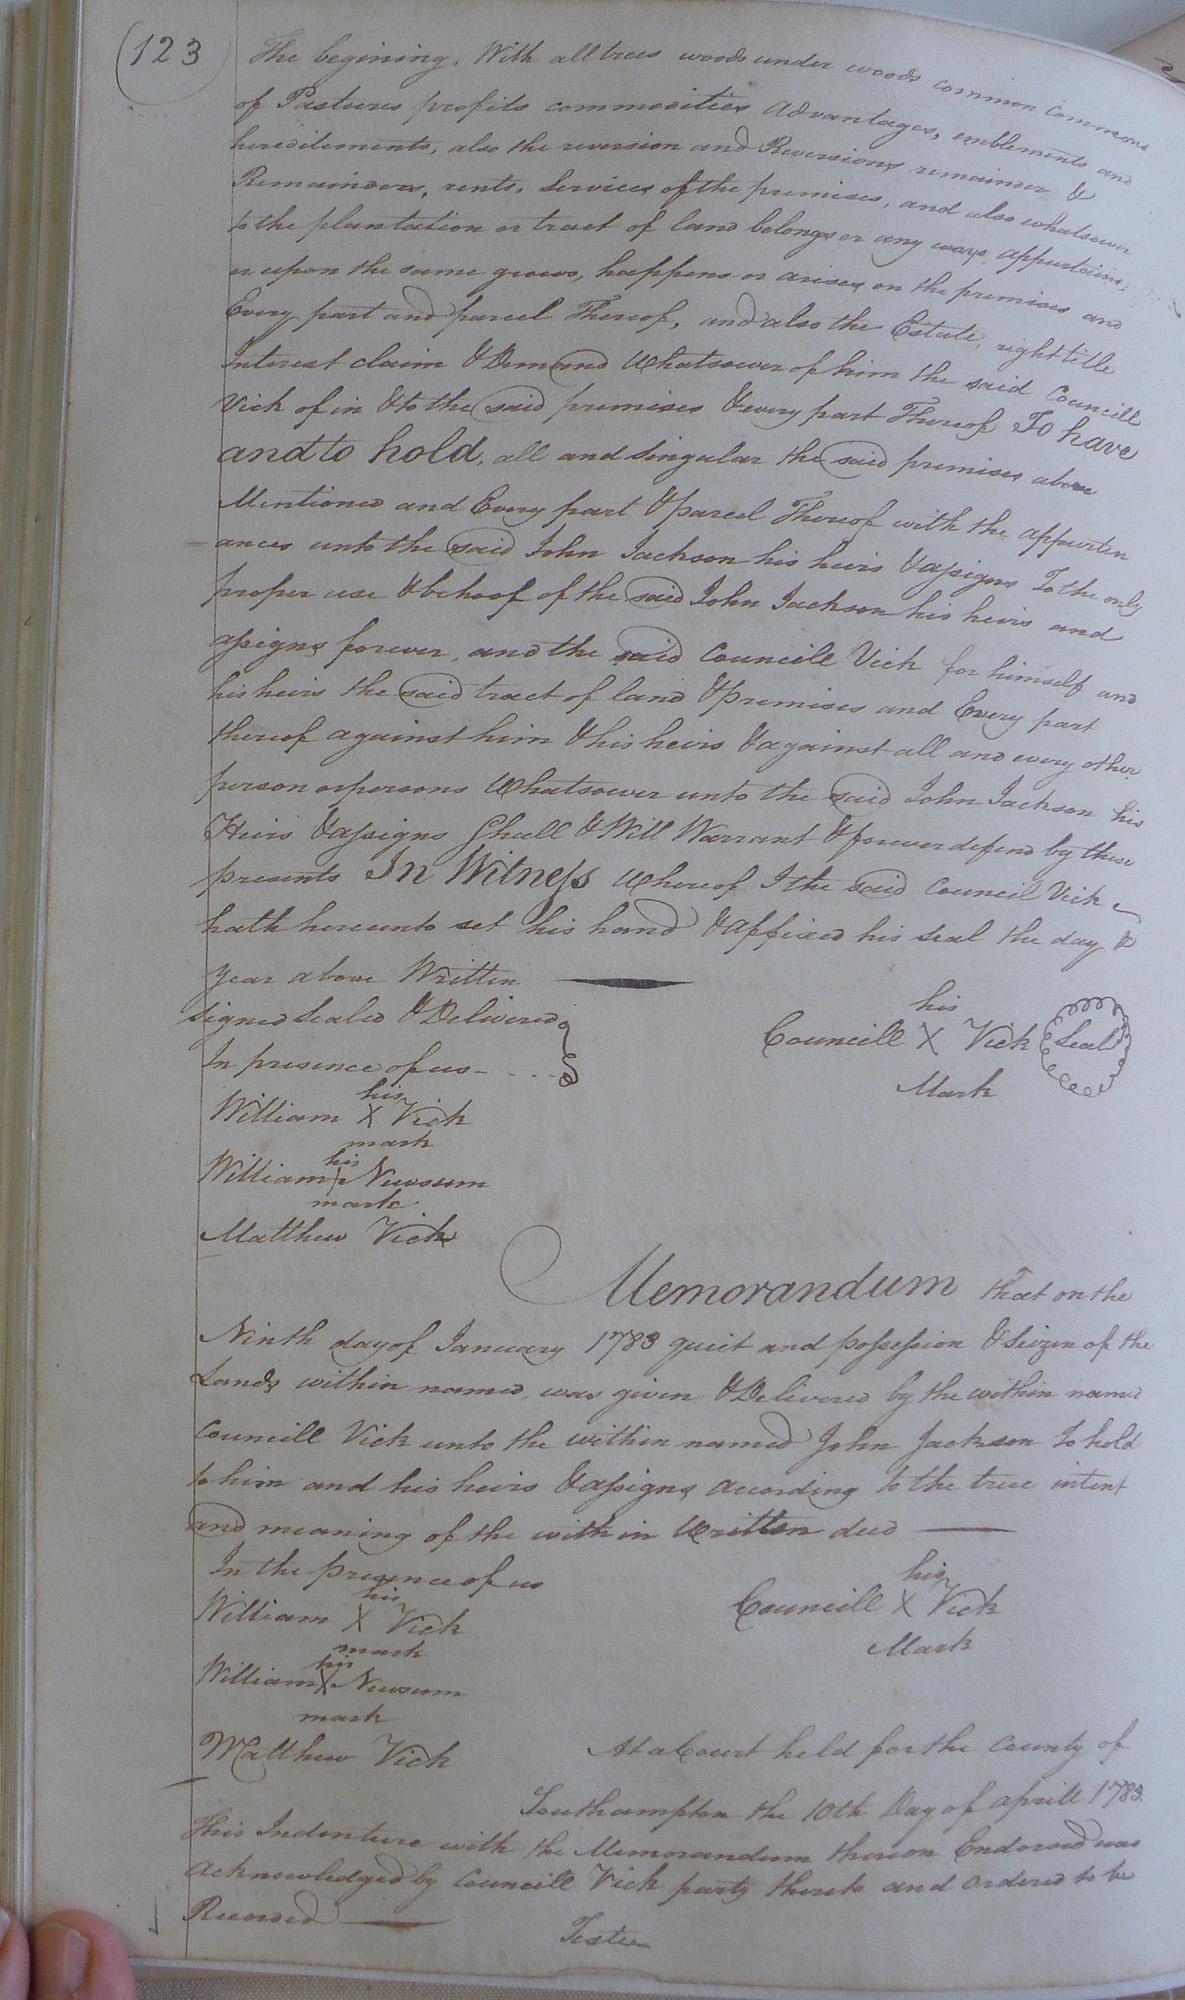 (123)
The begining. With all trees woods under woods common Commons
of Pastures profits commodities advantages, emblements and
hereditements, also the reversion and Reversions remainder &
Remainders, rents, Services of the premises, and also whatsoever
to the plantation or tract of land belongs or any ways appurtains,
or upon the same grows, happens or arises on the premises and
Every part and parcel Thereof, and also the Estate, right title
Interest claim & Demand Whatsoever of him the said Councill
Vick of in & to the said premises & every part Thereof To have
and to hold, all and Singular the said premises above
Mentioned and Every part & parcel Thereof with the appurten
ances unto the said John Jackson his heirs & assigns To the only
proper use & behoof of the said John Jackson his heirs and
assigns forever, and the said Councill Vick for himself and
his heirs the said tract of land & premises and Every part
thereof against him & his heirs & against all and every other
person or persons Whatsoever unto the said John Jackson his
Heirs & assigns Shall & Will Warrant & forever defend by these
presents In Witness Whereof I the said Council Vick
hath hereunto set his hand & affixed his seal the day &
year above Written
Signed Sealed & Delivered
In presence of us
his
Councill X Vick Seal
Mark
his
William X Vick
mark
his
William X Newsum
mark
Matthew Vick
Memorandum that on the
Ninth day of January 1783 quiet and possession & Seizen of the
Lands within named was given & Delivered by the within named
Councill Vick unto the within named John Jackson To hold
to him and his heirs & assigns According to the true intent
and meaning of the within Written deed
In the presence of us
his
Councill X Vick
Mark
his
William X Vick
mark
his
William X Newsum
mark
Matthew Vick
At a Court held for the County of
Southampton the 10th Day of aprill 1783.
This Indenture with the Memorandum thereon Endorsed was
acknowledged by Councill Vick party thereto and Ordered to be
Recorded
Teste